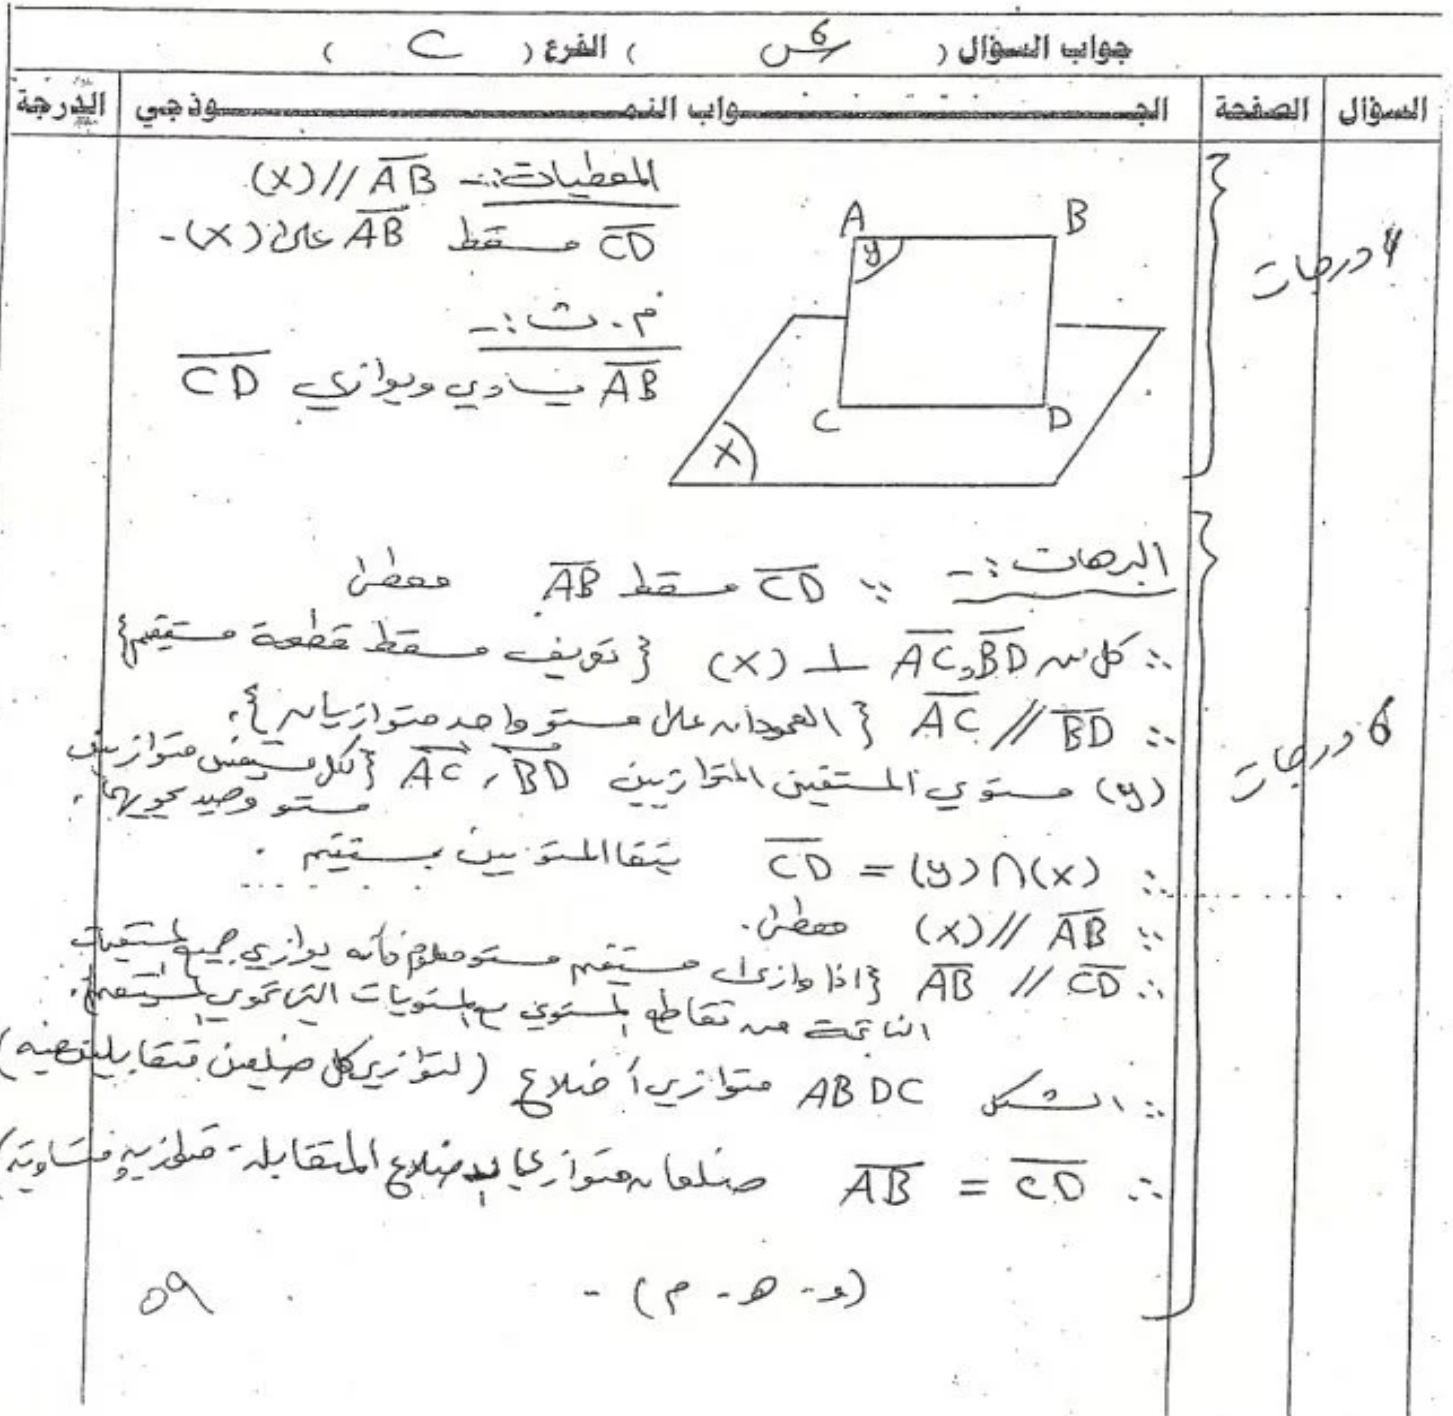 جواب السؤال ( س6 ) الفرع ( C )
السؤال الصفحة الجـــواب النمـــوذجي الدرجة
المعطيات:- (X) // AB
CD مسقط AB على (X) -
م . ث :-
AB يساوي ويوازي CD
A B
y
C D
X
4 درجات
البرهان :- ∵ CD مسقط AB معطى
∴ كل من AC, BD ⊥ (X) { تعريف مسقط قطعة مستقيم }
∴ AC // BD { العمودان على مستو واحد متوازيان }.
(y) مستوي المستقيمين المتوازيين AC, BD { لكل مستقيمين متوازيين
مستو وحيد يحويهما.
6 درجات
∴ CD = (y) ∩ (X) المستويين بمستقيم .
∵ (X) // AB معطى.
∴ AB // CD { اذا وازى مستقيم مستو معلوم فأنه يوازي جميع المستقيمات
الناتجة من تقاطع المستوي مع المستويات التي تحوي المستقيم.
∴ الشكل ABDC متوازي أضلاع (لتوازي كل ضلعين متقابلين فيه)
∴ AB = CD الاضلاع المتقابلة متساوية)
(و - هـ - م) -
٥٩